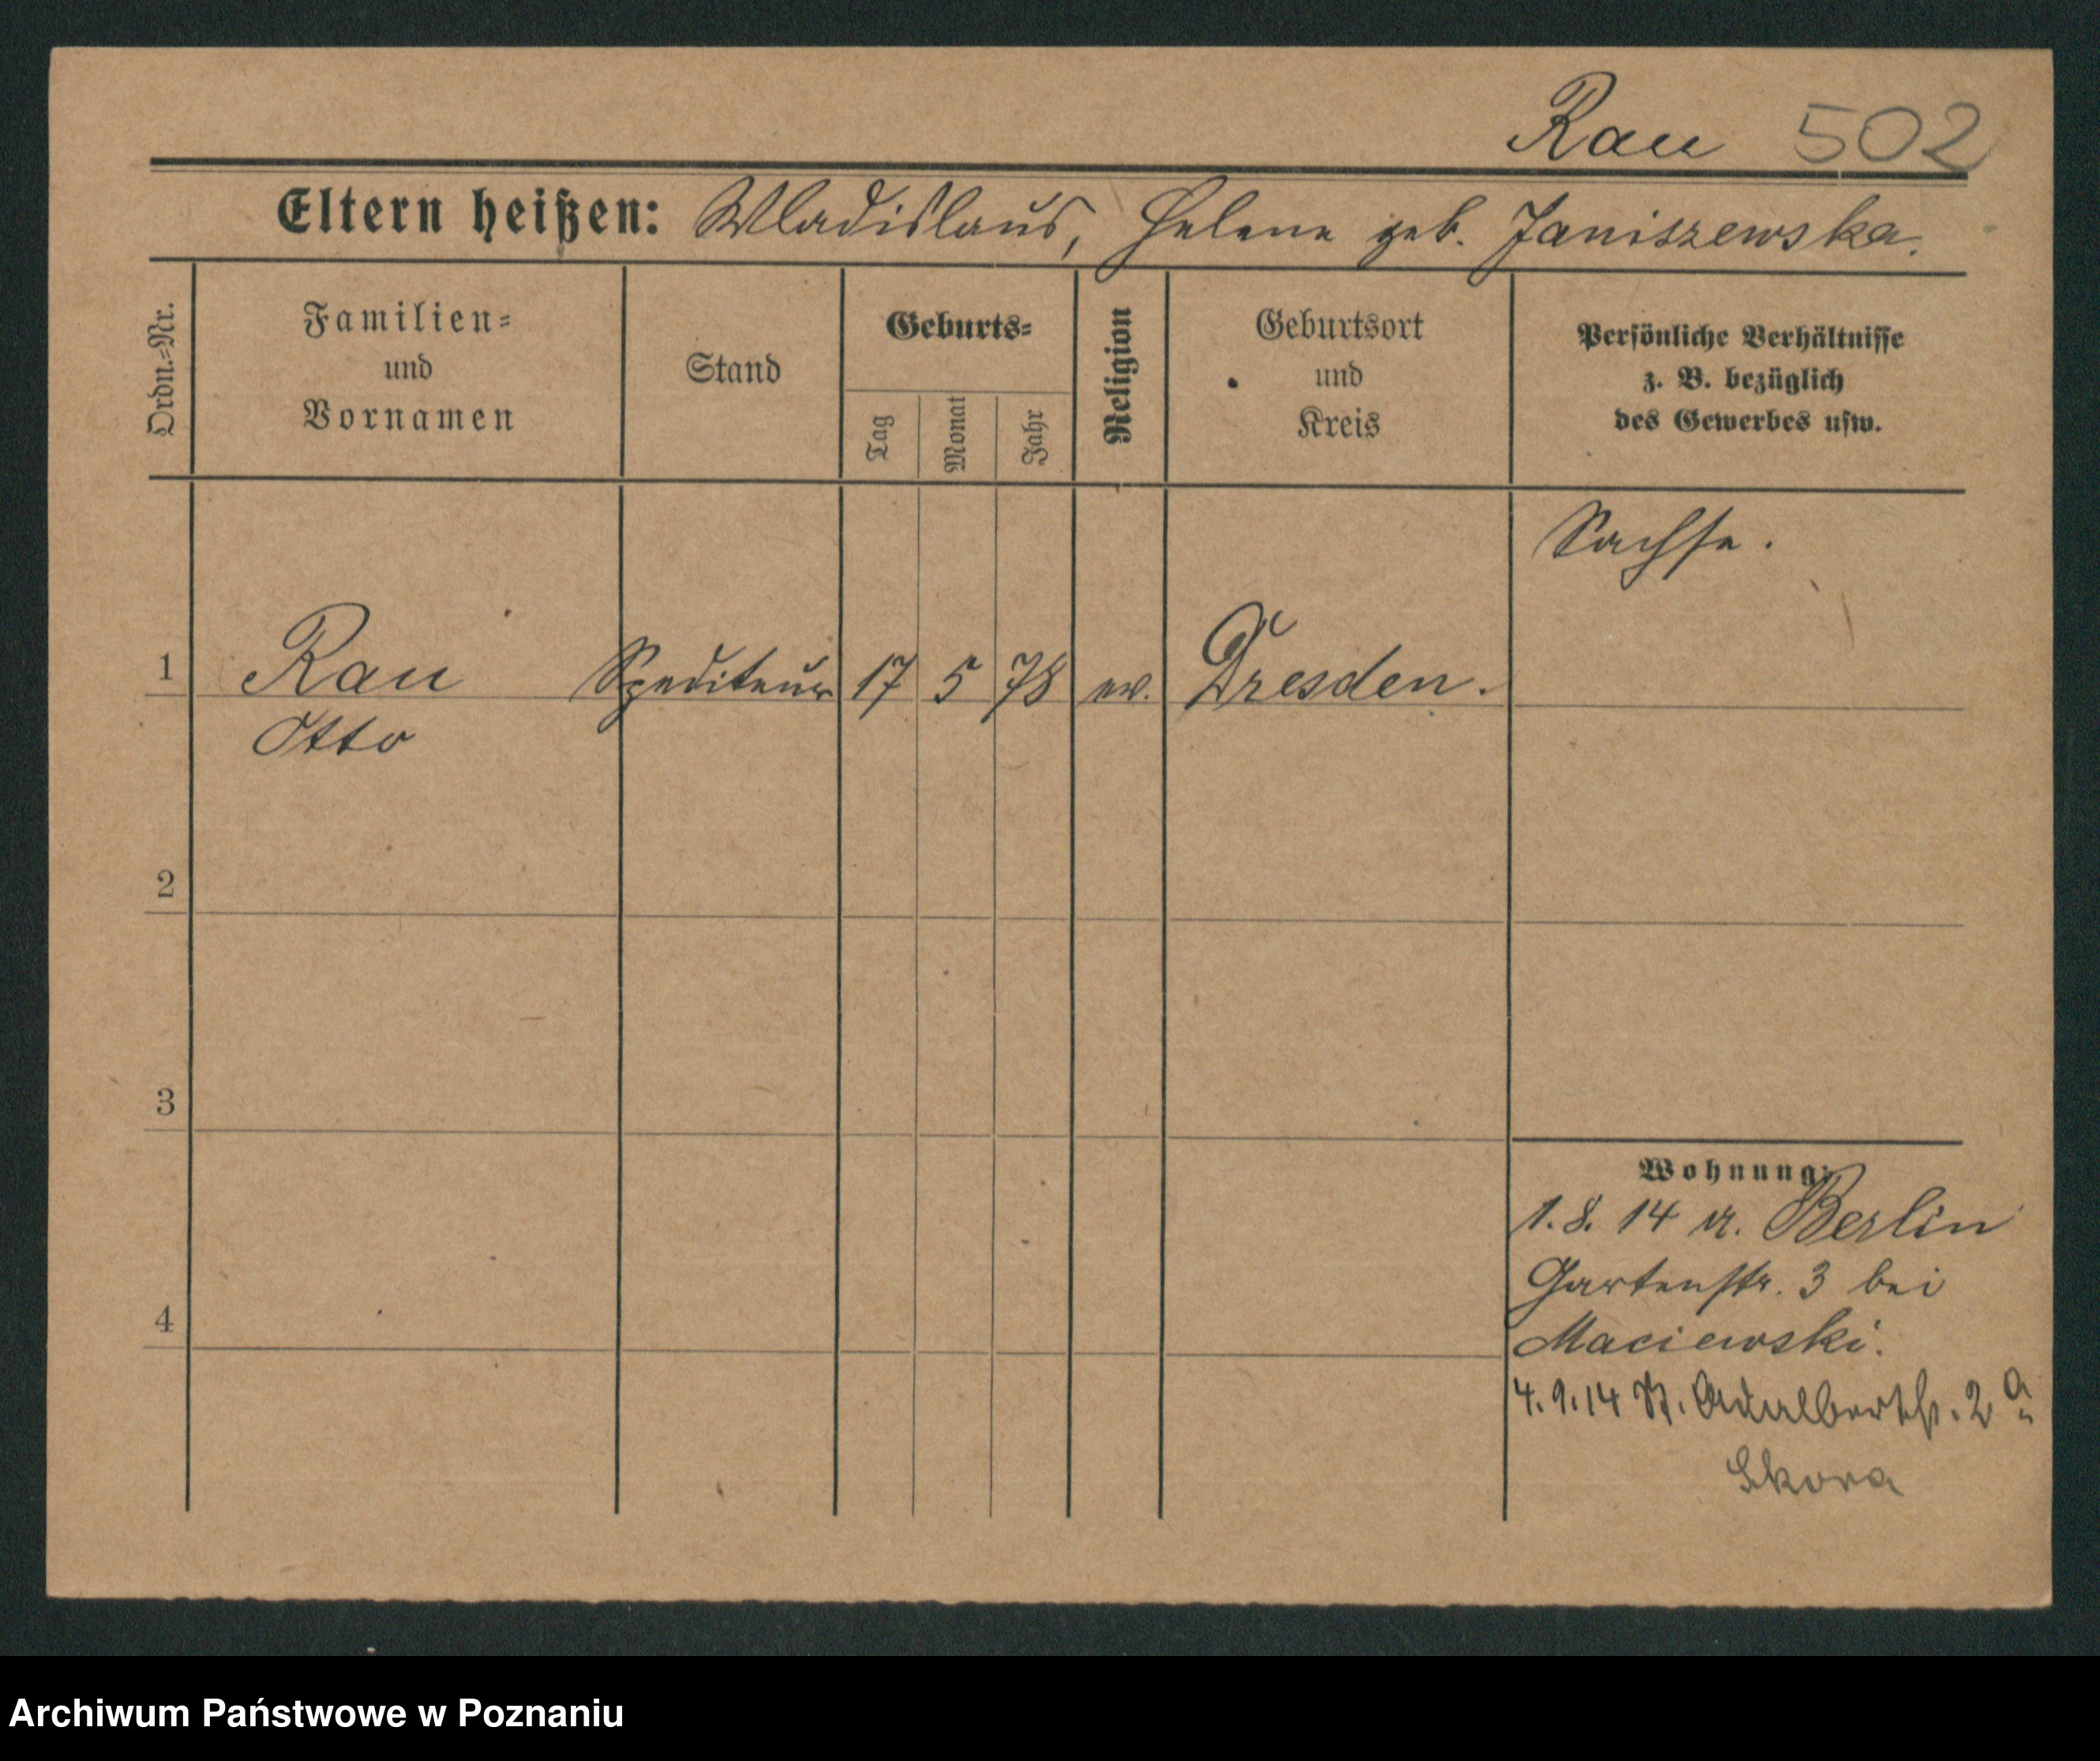 Rau 502
Eltern heißen: Wladislaus, Helene geb. Janiszewska.
Ordn.=Nr.
Familien=
und
Vornamen
Stand
Geburts=
Tag
Monat
Jahr
Religion
Geburtsort
und
Kreis
Persönliche Verhältnisse
z. B. bezüglich
des Gewerbes usw.
Sachse.
1 Rau Spediteur 17 5 78 ev. Dresden.
Otto
2
3
4
Wohnung:
1. 8. 14 v. Berlin
Gartenstr. 3 bei
Maciewski.
4. 9. 14 St. Adalbertstr. 2 a
Skora
Archiwum Państwowe w Poznaniu